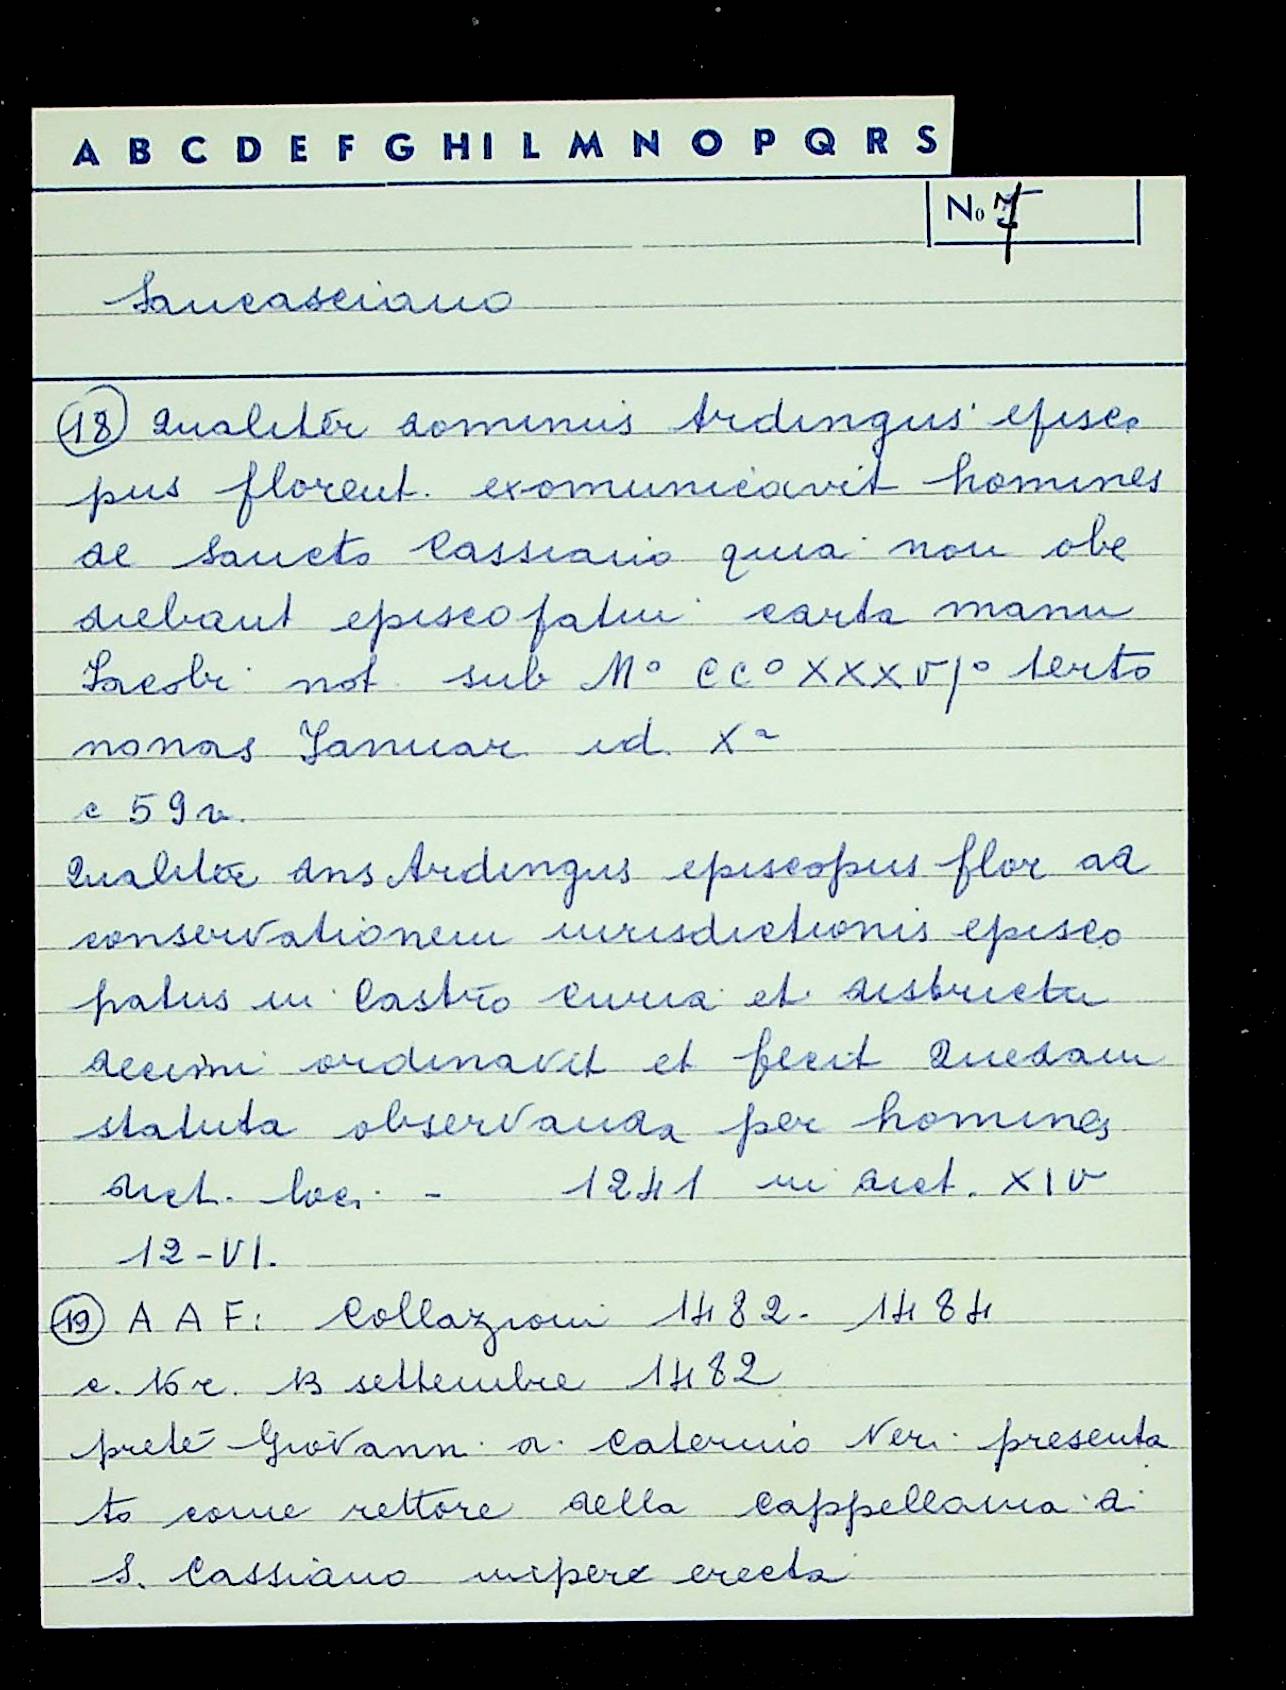 A B C D E F G H I L M N O P Q R S
No 7
Sancasciano
18 Qualiter dominus Ardingus episco
pus florent. exomunicavit homines
de Sancto Cassiano quia non obe
diebant episcopatui carta manu
Iacobi not sub M° CC° XXXVI° tertо
nonas Januar ind. Xa
c 59 v.
Qualiter dns Ardingus episcopus flor ad
conservationem iurisdictionis episco
patus in Castro Curia et districtu
decimi ordinavit et fecit quedam
statuta observanda per homines
dict. loci - 1241 in dict. XIV
12-VI.
19 A A F: Collazioni 1482-1484
c. 16 r. 13 settembre 1482
prete Giovanni di Caterino Neri presenta
to come rettore della cappellania di
S. Cassiano nuper erecta